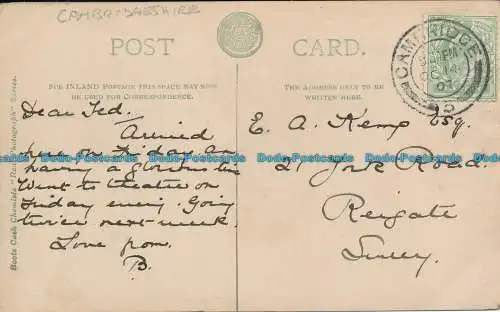 CAMBRIDGESHIRE
POST CARD.
FOR INLAND POSTAGE THIS SPACE MAY NOW
BE USED FOR CORRESPONDENCE.
THE ADDRESS ONLY TO BE
WRITTEN HERE.
CAMBRIDGE
Dear Ted.
Arrived
here on Friday am
having a glorious time
Went to theatre on
Friday evenig. Going
twice next week.
Love from
B.
E. A. Kemp Esq.
21 York Road.
Reigate
Surrey.
Boots Cash Chemists "Real Photograph" Series.
bbc-Postcards bbc-Postcards bbc-Postcards bbc-Postcards